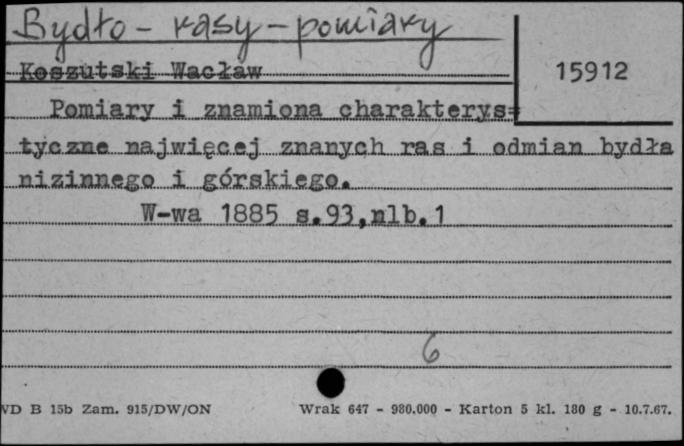 Bydło - rasy - pomiary
Koszutski Wacław
15912
Pomiary i znamiona charakterys=
tyczne najwięcej znanych ras i odmian bydła
nizinnego i górskiego.
W-wa 1885 s.93,nlb.1
6
VD B 15b Zam. 915/DW/ON Wrak 647 - 980.000 - Karton 5 kl. 180 g - 10.7.67.